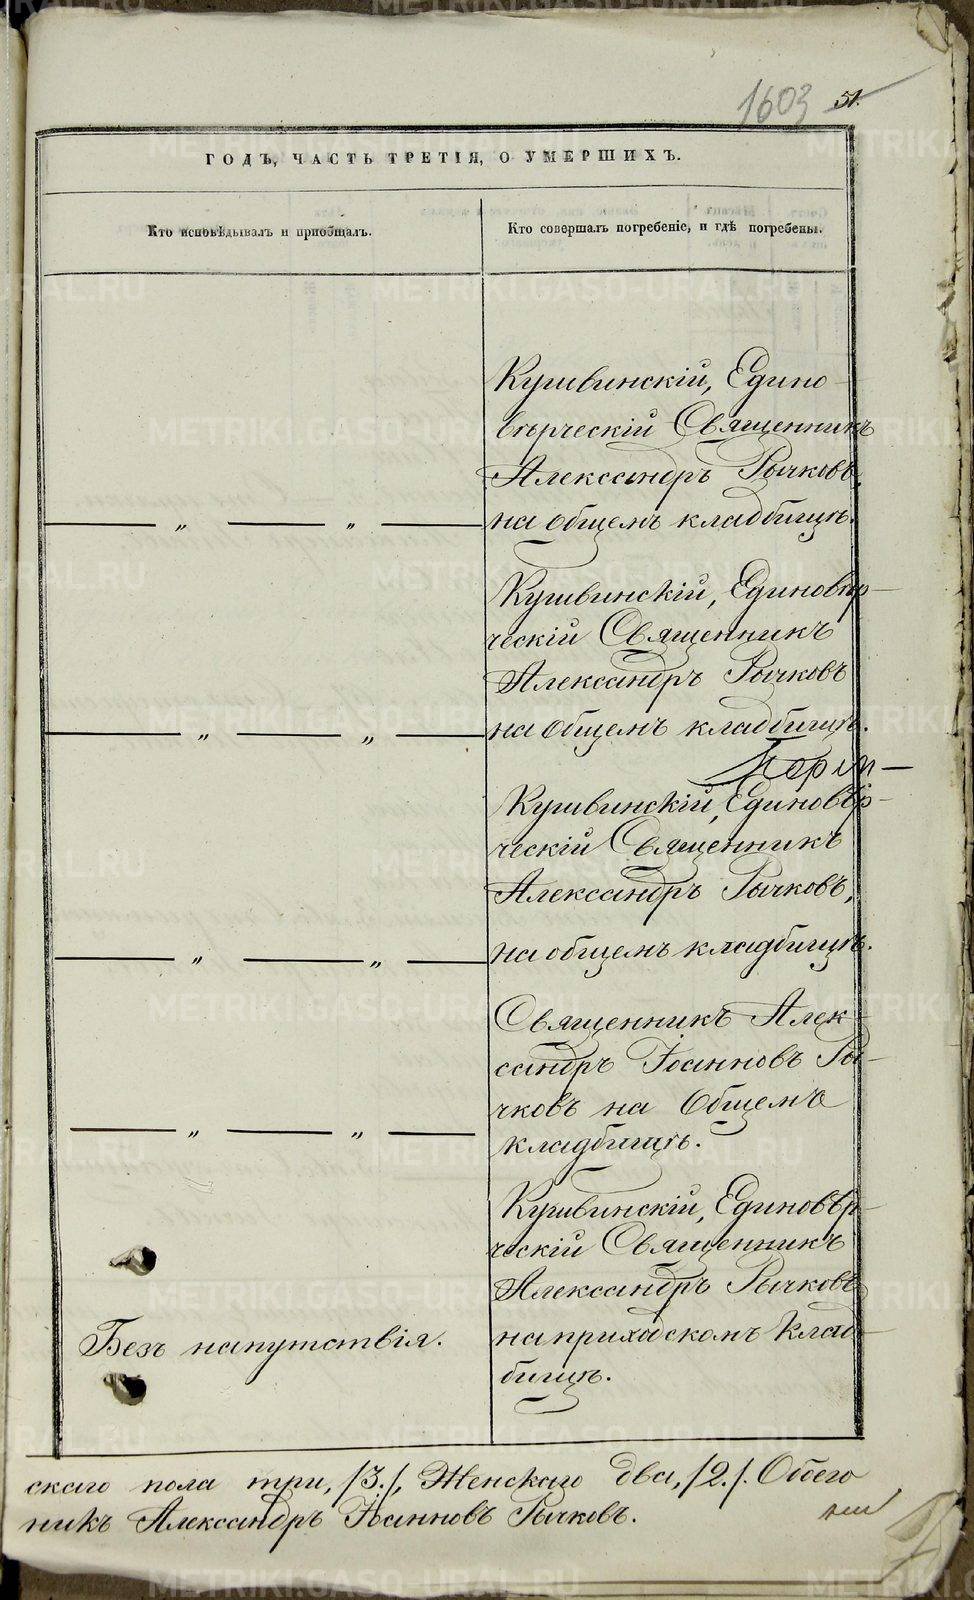 1603 51.
ГОДЪ, ЧАСТЬ ТРЕТІЯ, О УМЕРШИХЪ.
Кто исповѣдывалъ и пріобщалъ.
Кто совершалъ погребеніе, и гдѣ погребены.
Кушвинскій, Едино-
вѣрческій Священникъ
Александръ Рычковъ,
на общемъ кладбищѣ.
— „ — „ —
Кушвинскій, Единовѣр-
ческій Священникъ
Александръ Рычковъ
на общемъ кладбищѣ.
— „ — „ —
Кушвинскій, Единовѣр-
ческій Священникъ
Александръ Рычковъ,
на общемъ кладбищѣ.
— „ — „ —
Священникъ Алек-
сандръ Іоанновъ Ры-
чковъ на Общемъ
кладбищѣ.
— „ — „ —
Кушвинскій, Единовѣр-
ческій Священникъ
Александръ Рычковъ
на приходскомъ клад-
бищѣ.
Безъ напутствія.
скаго пола три, /3./, Женскаго два, /2./. Обоего
никъ Александръ Іоанновъ Рычковъ.
METRIKI.GASO-URAL.RU